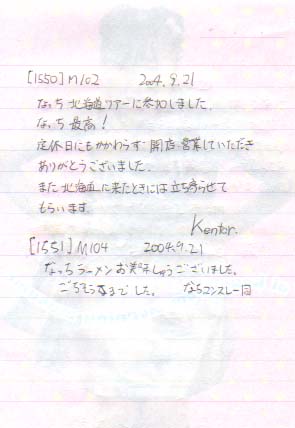 [1550] M102 2004.9.21
なっち北海道ツアーに参加しました。
なっち最高!
定休日にもかかわらず開店・営業していただき
ありがとうございました。
また北海道に来たときには立ち寄らせて
もらいます。
Kentar.
[1551] M104 2004.9.21
なっちラーメンお美味しゅうございました。
ごちそうさまでした。 なち